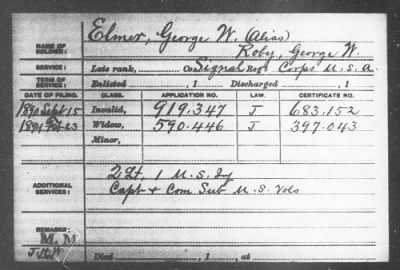 NAME OF SOLDIER: Elmer, George W. (Alias)
Roby, George W.
SERVICE: Late rank, Co. Signal Reg't Corps U.S.A.
TERM OF SERVICE: Enlisted , 1 Discharged , 1
DATE OF FILING. CLASS. APPLICATION NO. LAW. CERTIFICATE NO.
1890 Sept 15 Invalid, 919.347 J 683.152
23 Widow, 590.446 J 397.043
Minor,
ADDITIONAL SERVICES: 2 Lt, 1 U.S. Inf
Capt & Com Sub U.S. Vols
REMARKS:
M. M
Died , 1 , at